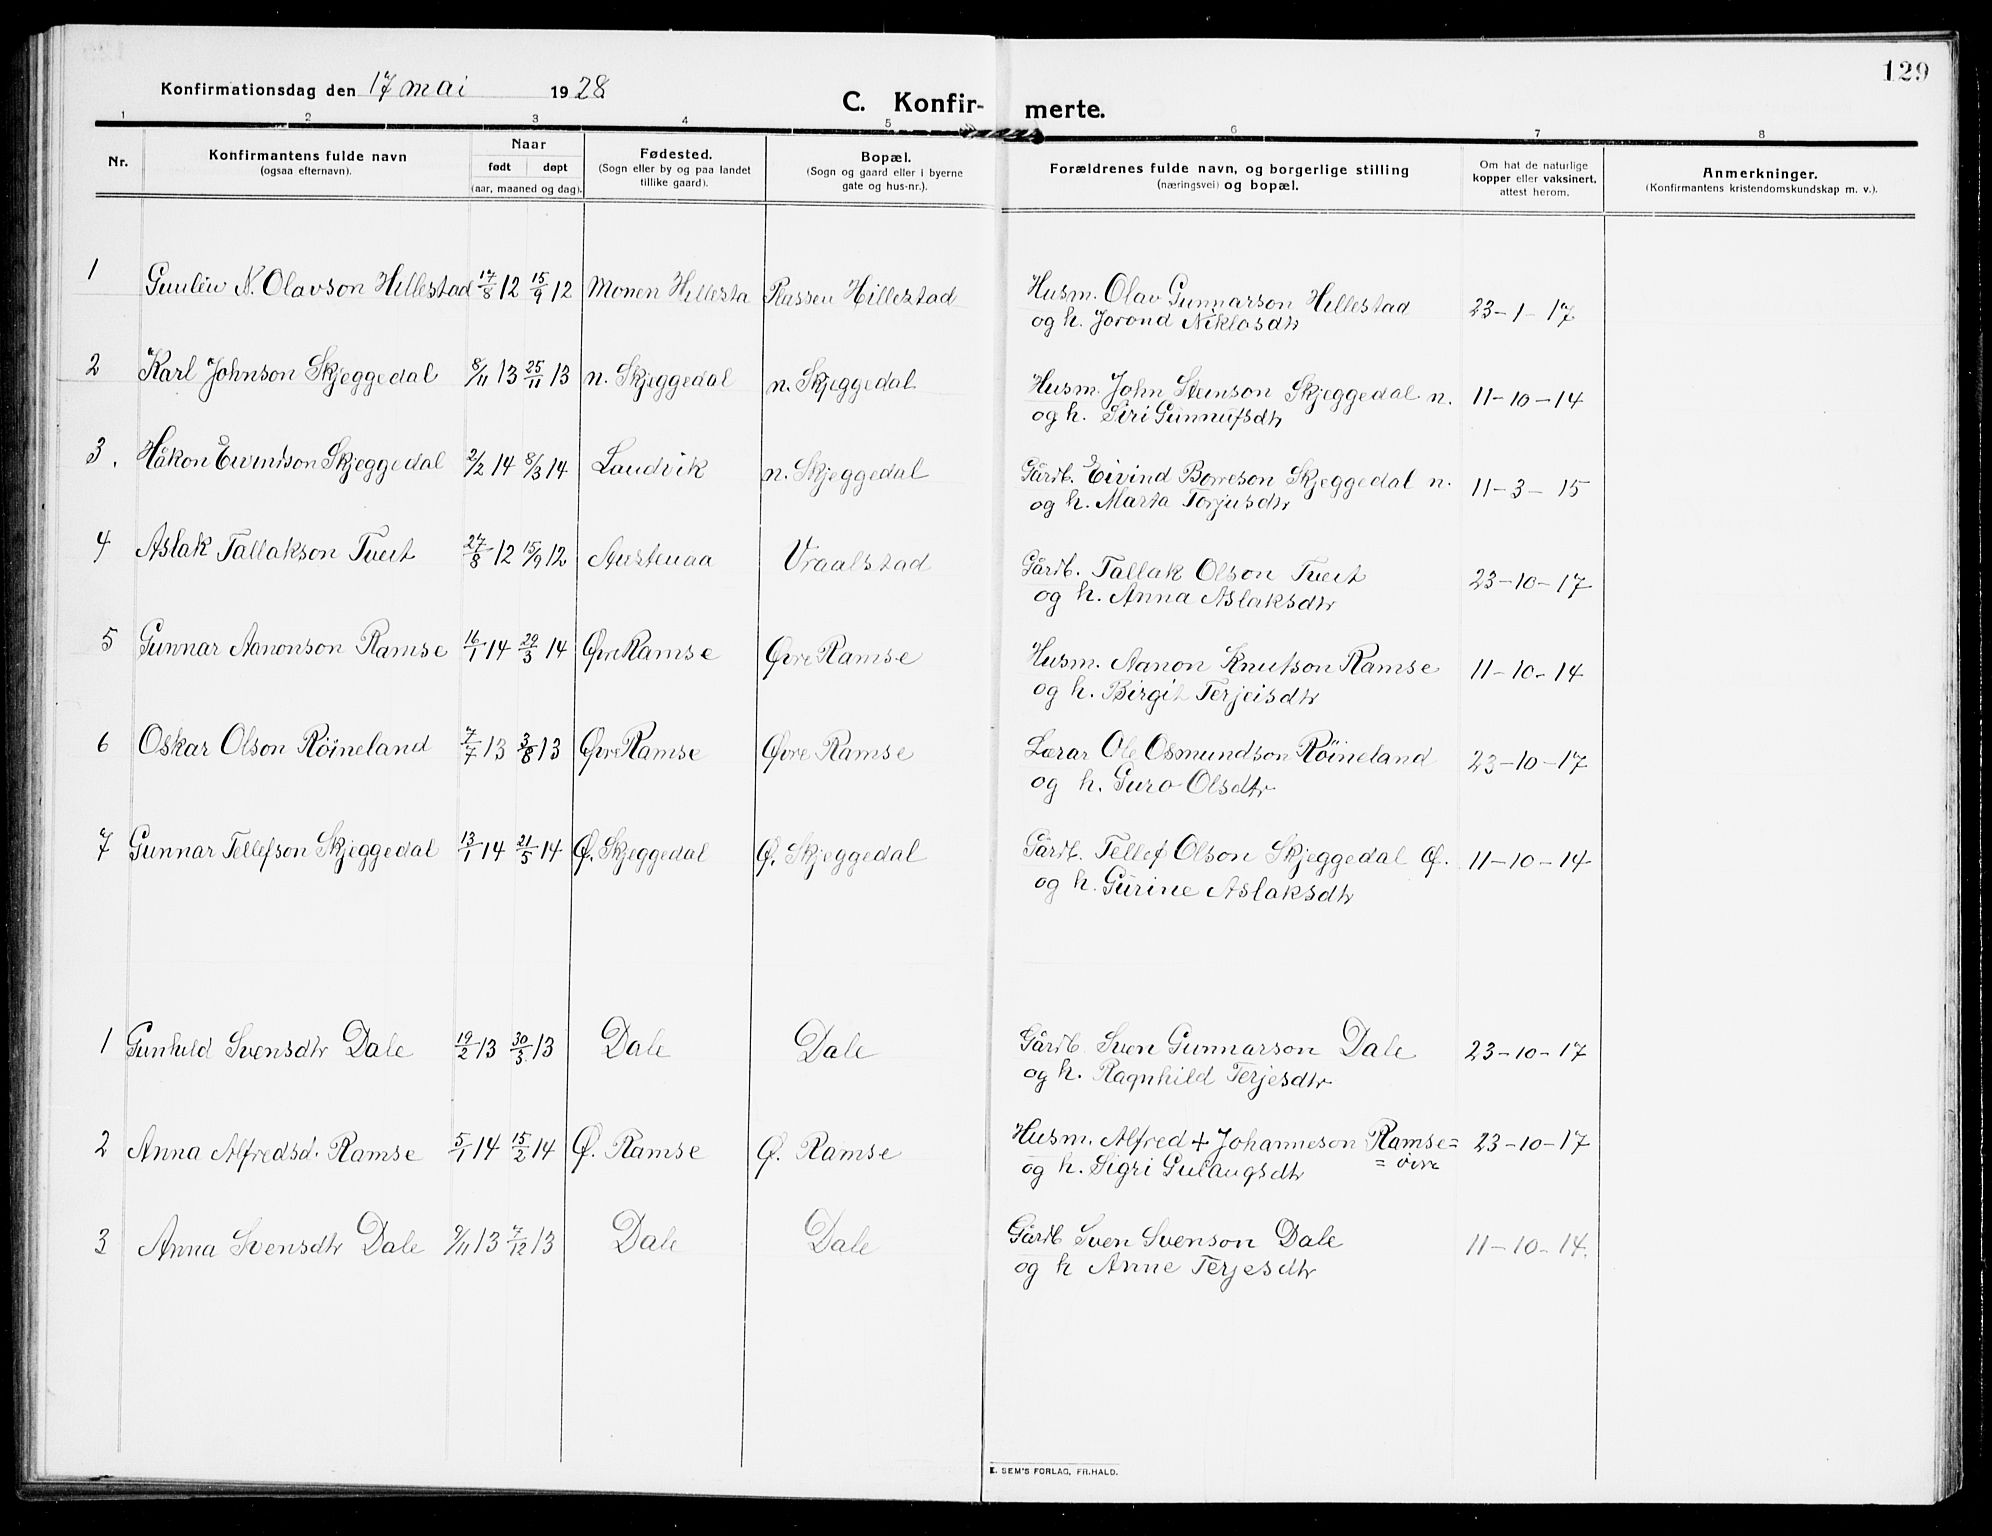 129
Konfirmationsdag den 17 mai 1928
C. Konfir- merte.
1 2 3 4 5 6 7 8
Nr. Konfirmantens fulde navn Naar Fødested. Bopæl. Forældrenes fulde navn, og borgerlige stilling Om hat de naturlige Anmerkninger.
(ogsaa efternavn). født døpt (Sogn eller by og paa landet (Sogn og gaard eller i byerne (næringsvei) og bopæl. kopper eller vaksinert, (Konfirmantens kristendomskundskap m. v.).
(aar, maaned og dag). tillike gaard). gate og hus-nr.). attest herom.
1 Gunleiv N. Olavson Hillestad 17/8 12 15/9 12 Monen Hillesta Plassen Hillestad Husm. Olav Gunnarson Hillestad 23-1-17
og h. Jorond Niklosdtr
2 Karl Johnson Skjeggedal 8/11 13 25/11 13 n. Skjeggedal n. Skjeggedal Husm. John Steinson Skjeggedal n. 11-10-14
og h. Siri Gunnufsdtr
3. Håkon Eivindson Skjeggedal 2/2 14 8/3 14 Landvik n. Skjeggedal Gårdb. Eivind Borreson Skjeggedal n. 11-3-15
og h. Marta Torjusdtr
4 Aslak Tallakson Tveit 27/8 12 15/9 12 Austenaa Vraalstad Gårdb. Tallak Olson Tveit 23-10-17
og h. Anna Aslaksdtr
5 Gunnar Aanonson Ramse 16/1 14 29/3 14 Øvre Ramse Øvre Ramse Husm. Aanon Knutson Ramse 11-10-14
og h. Birgit Terjeisdtr
6 Oskar Olson Röineland 7/7 13 3/8 13 Øvre Ramse Øvre Ramse Lærar Ole Osmundson Röineland 23-10-17
og h. Guro Olsdtr
7 Gunnar Tellefson Skjeggedal 13/1 14 21/5 14 Ø. Skjeggedal Ø. Skjeggedal Gårdb. Tellef Olson Skjeggedal Ø. 11-10-14
og h. Gurine Aslaksdtr
1 Gunhild Svensdtr Dale 19/2 13 30/3 13 Dale Dale Gårdb Sven Gunnarson Dale 23-10-17
og h. Ragnhild Terjesdtr
2 Anna Alfredsd. Ramse 5/1 14 15/2 14 Ø. Ramse Ø. Ramse Husm. Alfred + Johanneson Ramse= 23-10-17
og h. Sigri Gulaugsdtr = övre
3 Anna Svensdtr Dale 9/11 13 7/12 13 Dale Dale Gårdb Sven Svenson Dale 11-10-14.
og h Anne Terjesdtr
E. SEM'S FORLAG, FR.HALD.